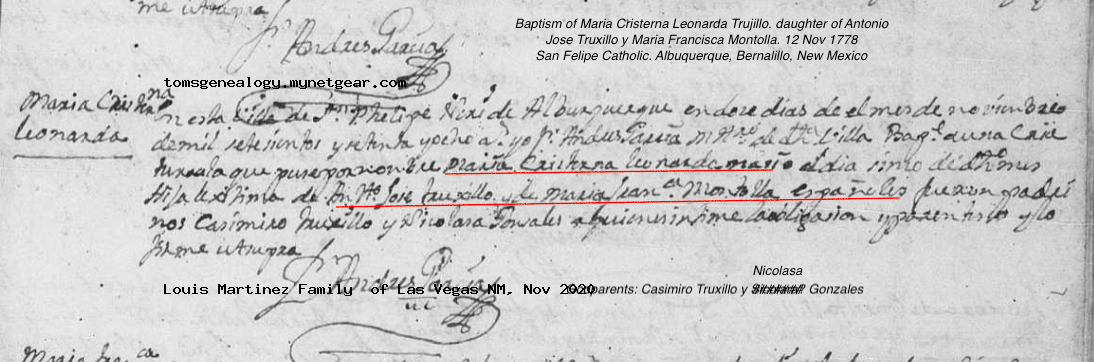 me ut supra
Fr. Andres Garcia
Baptism of Maria Cristerna Leonarda Trujillo. daughter of Antonio
Jose Truxillo y Maria Francisca Montolla. 12 Nov 1778
San Felipe Catholic. Albuquerque, Bernalillo, New Mexico
tomsgenealogy.mynetgear.com
Maria
leonarda
n esta Villa de Sn. Phelipe Neri de Alburquerque en dose dias de el mes de noviembre
de mil setesientos y setenta y ocho a. yo fr. Andres Garcia de Villa una Crie
tura a la que puse por nombre maria leonarda el dia mes
Hija lextima de Anto. Jose truxillo y de maria Franca. Montolla españoles fueron padri
nos Casimiro truxillo y Nicolasa Gonsales a quienes intime la obligasion y parentesco y lo
firme ut supra
Fr. Andres Garcia
Nicolasa
Louis Martinez Family of Las Vegas NM, Nov 2020
parents: Casimiro Truxillo y Gonzales
Maria